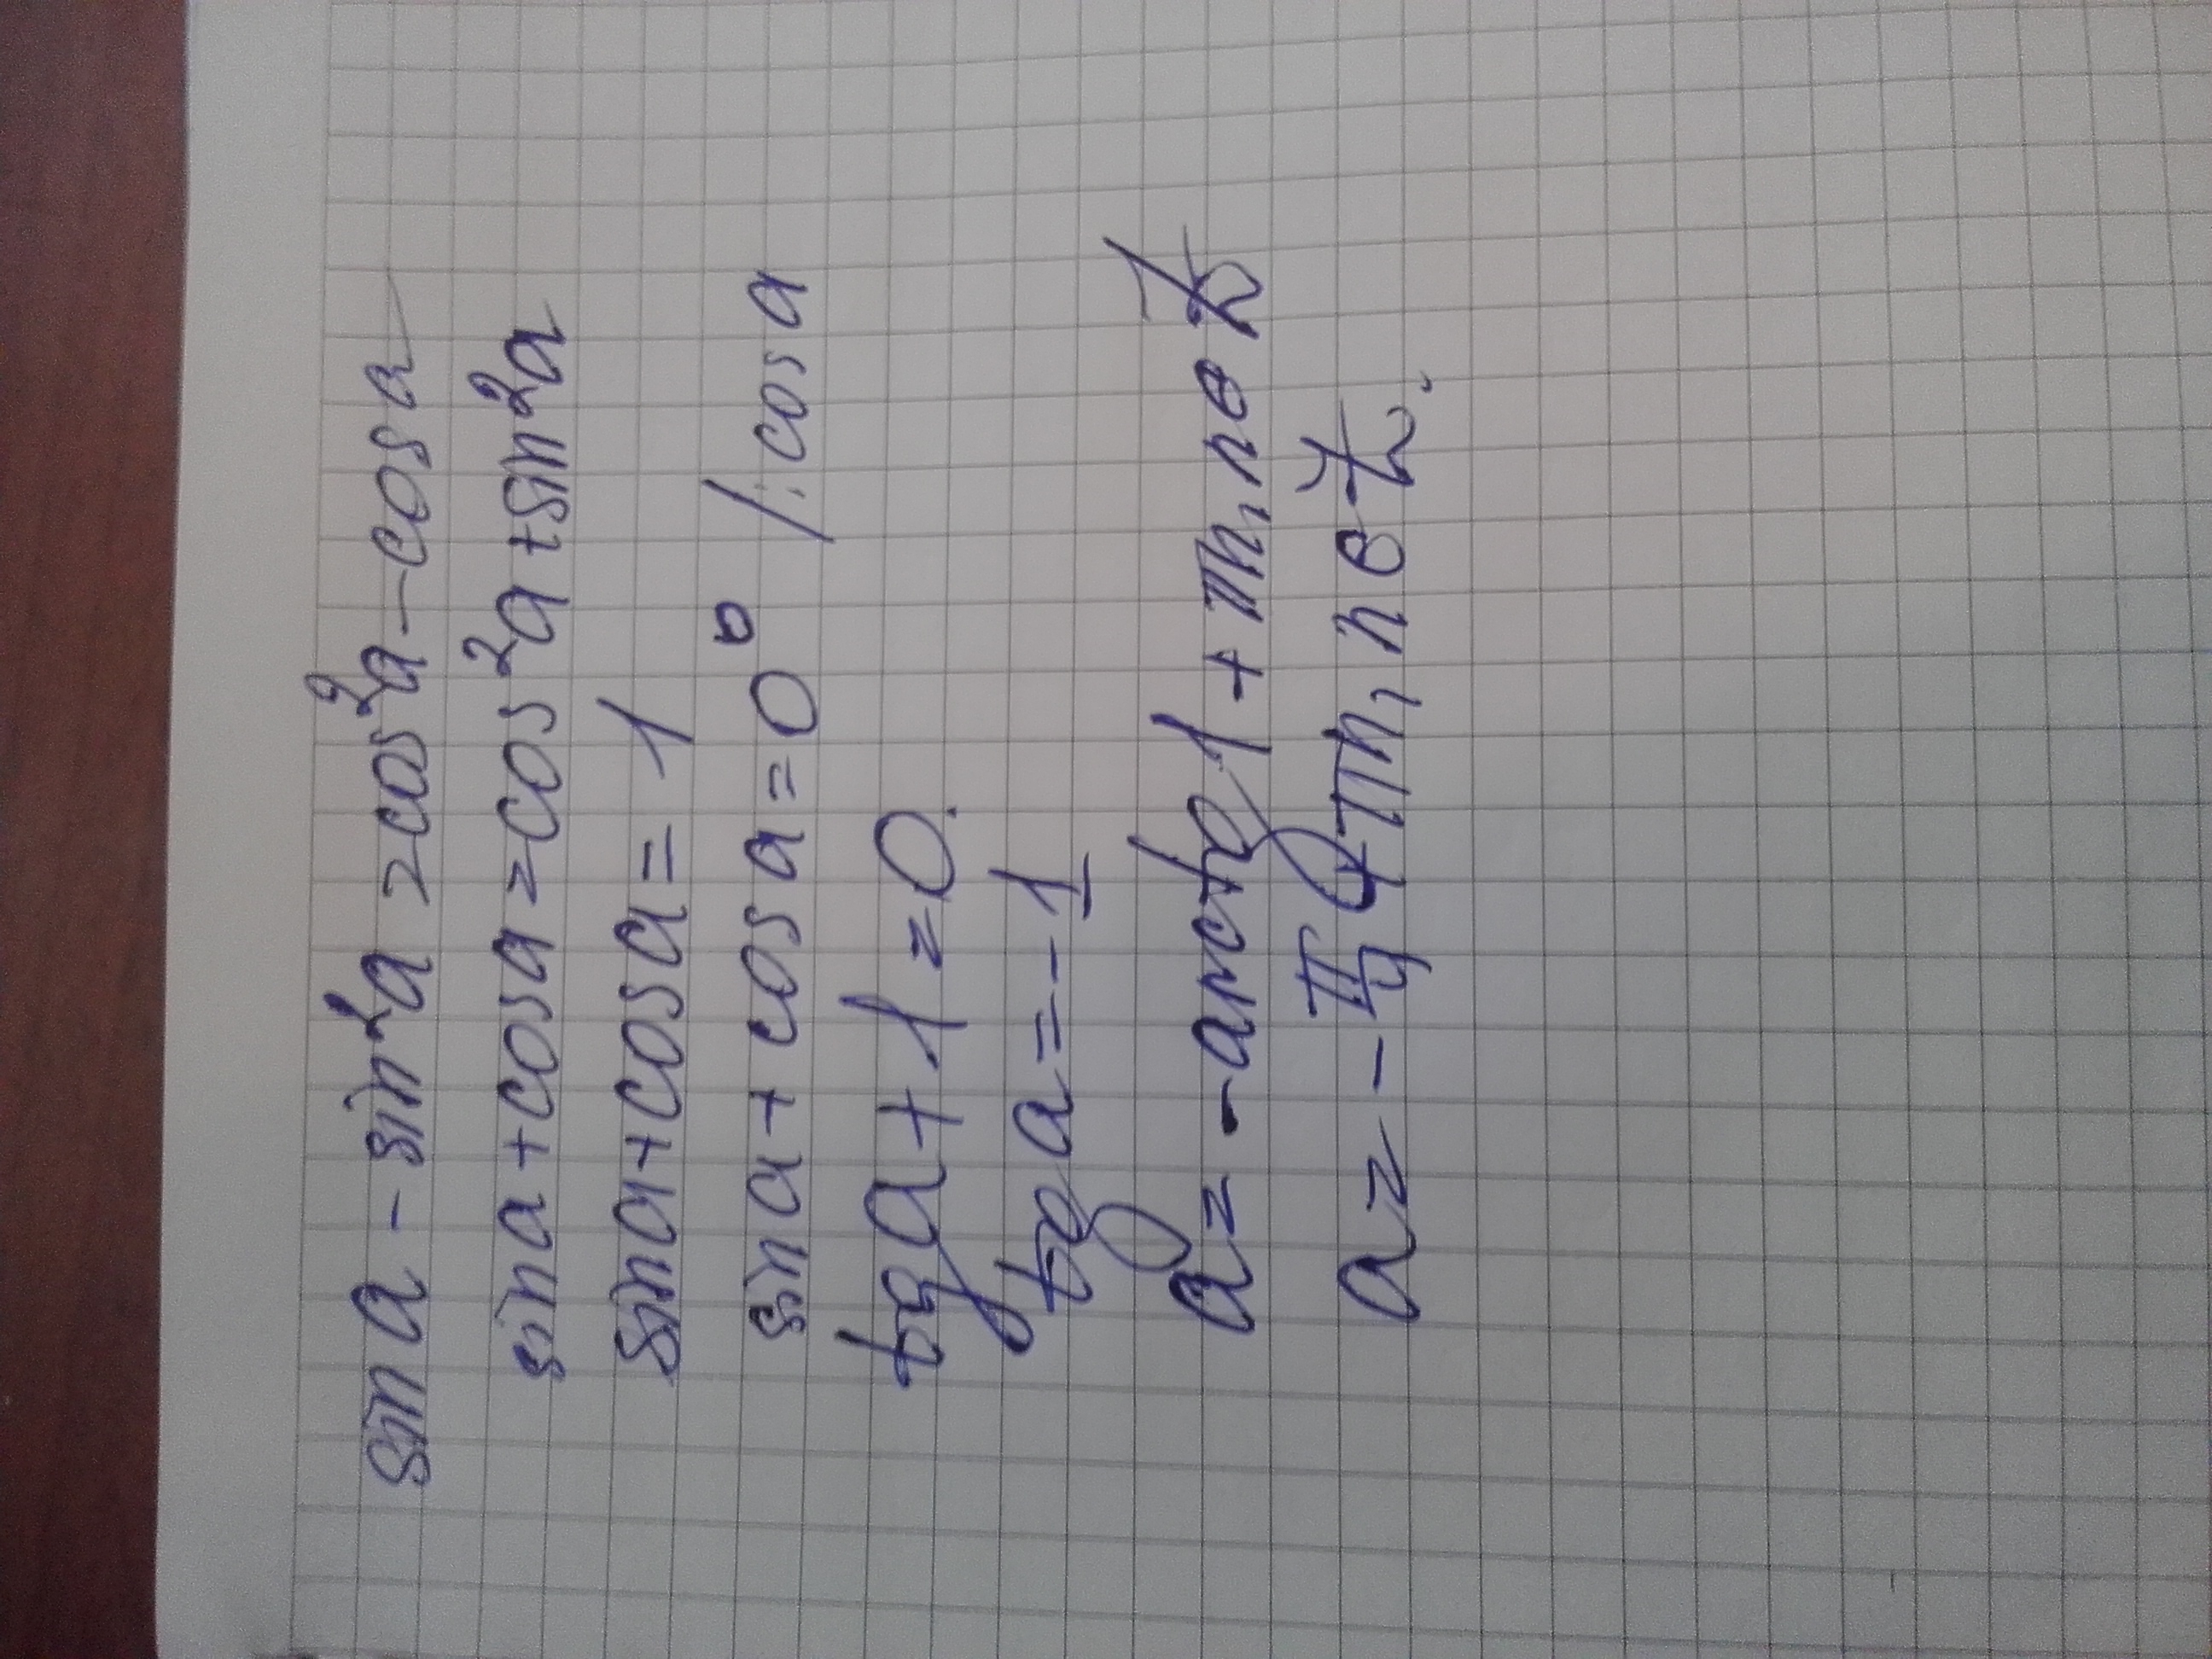 sin a - sin²a = cos²a - cos a
sin a + cos a = cos²a + sin²a
sin a + cos a = 1
sin a + cos a = 0 /: cos a
tg a + 1 = 0.
tg a = -1
a = -arctg 1 + πn, n ∈ Z
a = -π/4 + πn, n ∈ Z.